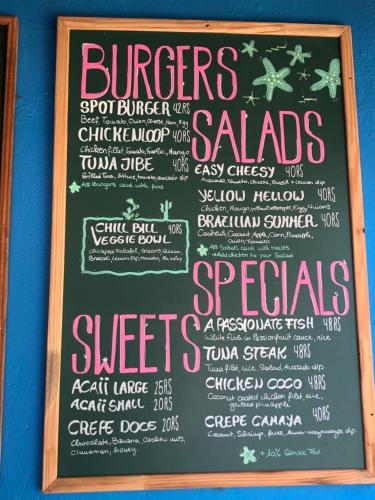 BURGERS
SPOT BURGER 42R$
Beef, Tomato, Onion, Cheese, Ham, egg
CHICKENLOOP 40R$
Chicken fillet, Tomato, Garlic, Mango
TUNA JIBE 40R$
Grilled Tuna, lettuce, tomato, avocado dip
All Burgers come with fries
CHILL BILL 40RS
VEGGIE BOWL
SALADS
EASY CHEESY 40RS
Avocado, Tomato, Cheese, Basil + Lemon dip
YELLOW MELLOW 40RS
Chicken, Mango, Egg, Onions
BRAZILIAN SUMMER 40RS
Cashews, Coconut, Apple, Corn, Pineapple,
Onion, Tomato
All Salads come with toasts
+ Add chicken to your Salad
SPECIALS
A PASSIONATE FISH 48RS
White fish in Passionfruit sauce, rice
TUNA STEAK 48RS
Tuna filet, rice, Salad, Avocado dip
CHICKEN COCO 48RS
Coconut coated chicken filet, rice,
grilled pineapple
CREPE CAMAYA 40RS
Coconut, Shrimp, fries, dip
+ 10% Service Tax
SWEETS
ACAÍÍ LARGE 25RS
ACAÍÍ SMALL 20RS
CREPE DOCE 20RS
chocolate, Banana, Cashew nuts,
cinnamon, honey